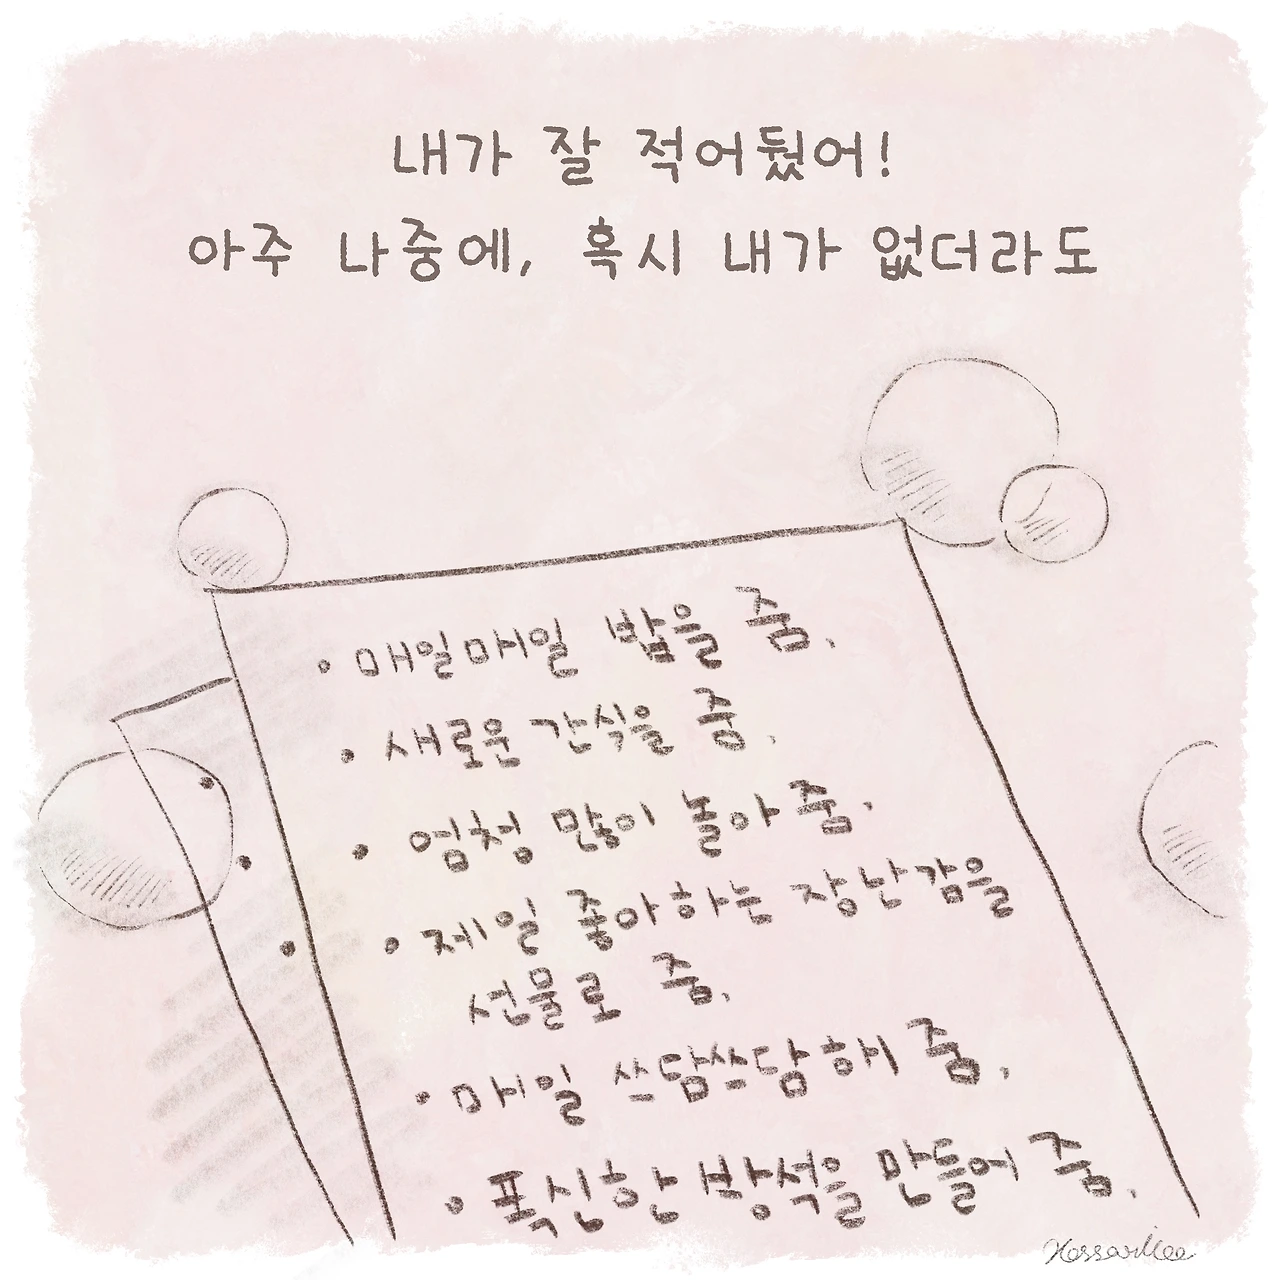 내가 잘 적어뒀어!
아주 나중에, 혹시 내가 없더라도
• 매일매일 밥을 줌.
• 새로운 간식을 줌.
• 엄청 많이 놀아 줌.
• 제일 좋아하는 장난감을
선물로 줌.
• 매일 쓰담쓰담해 줌.
• 폭신한 방석을 만들어 줌.